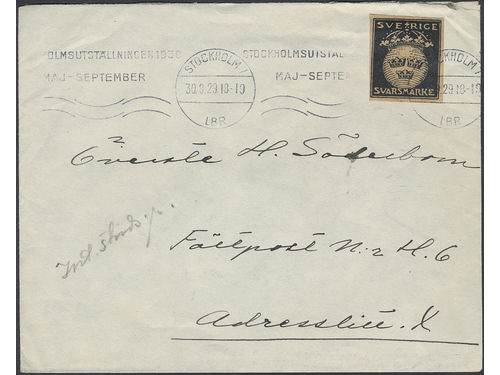 OLMSUTSTÄLLNINGEN 1930
MAJ-SEPTEMBER
STOCKHOLM 1
30.9.29.18-19
LBR
STOCKHOLMSUTSTÄL
MAJ-SEPTE
SVERIGE
SVARSMARKE
CKHOLM 1
9.29.18-19
LBR
Överste H. Söderbom
Fältpost N:r H. 6
Adresslitt. X